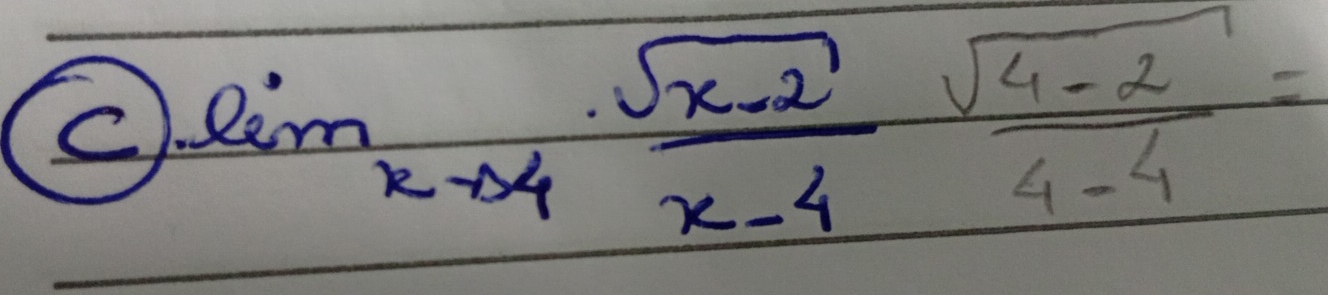 C. lim x→4 √(x-2) / (x-4) √(4-2) / (4-4) =